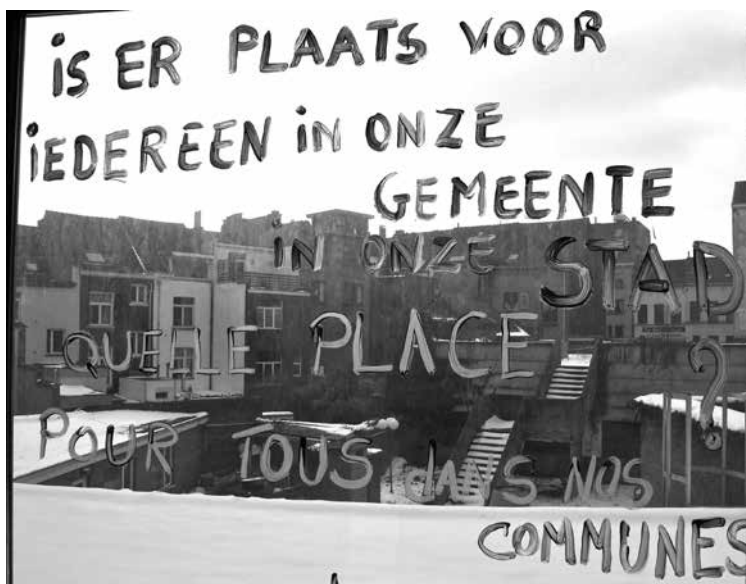 iS ER PLAATS VOOR
iEDEREEN in ONZE
GEMEENTE
in ONZE STAD
QUELLE PLACE ?
POUR TOUS DANS NOS
COMMUNES